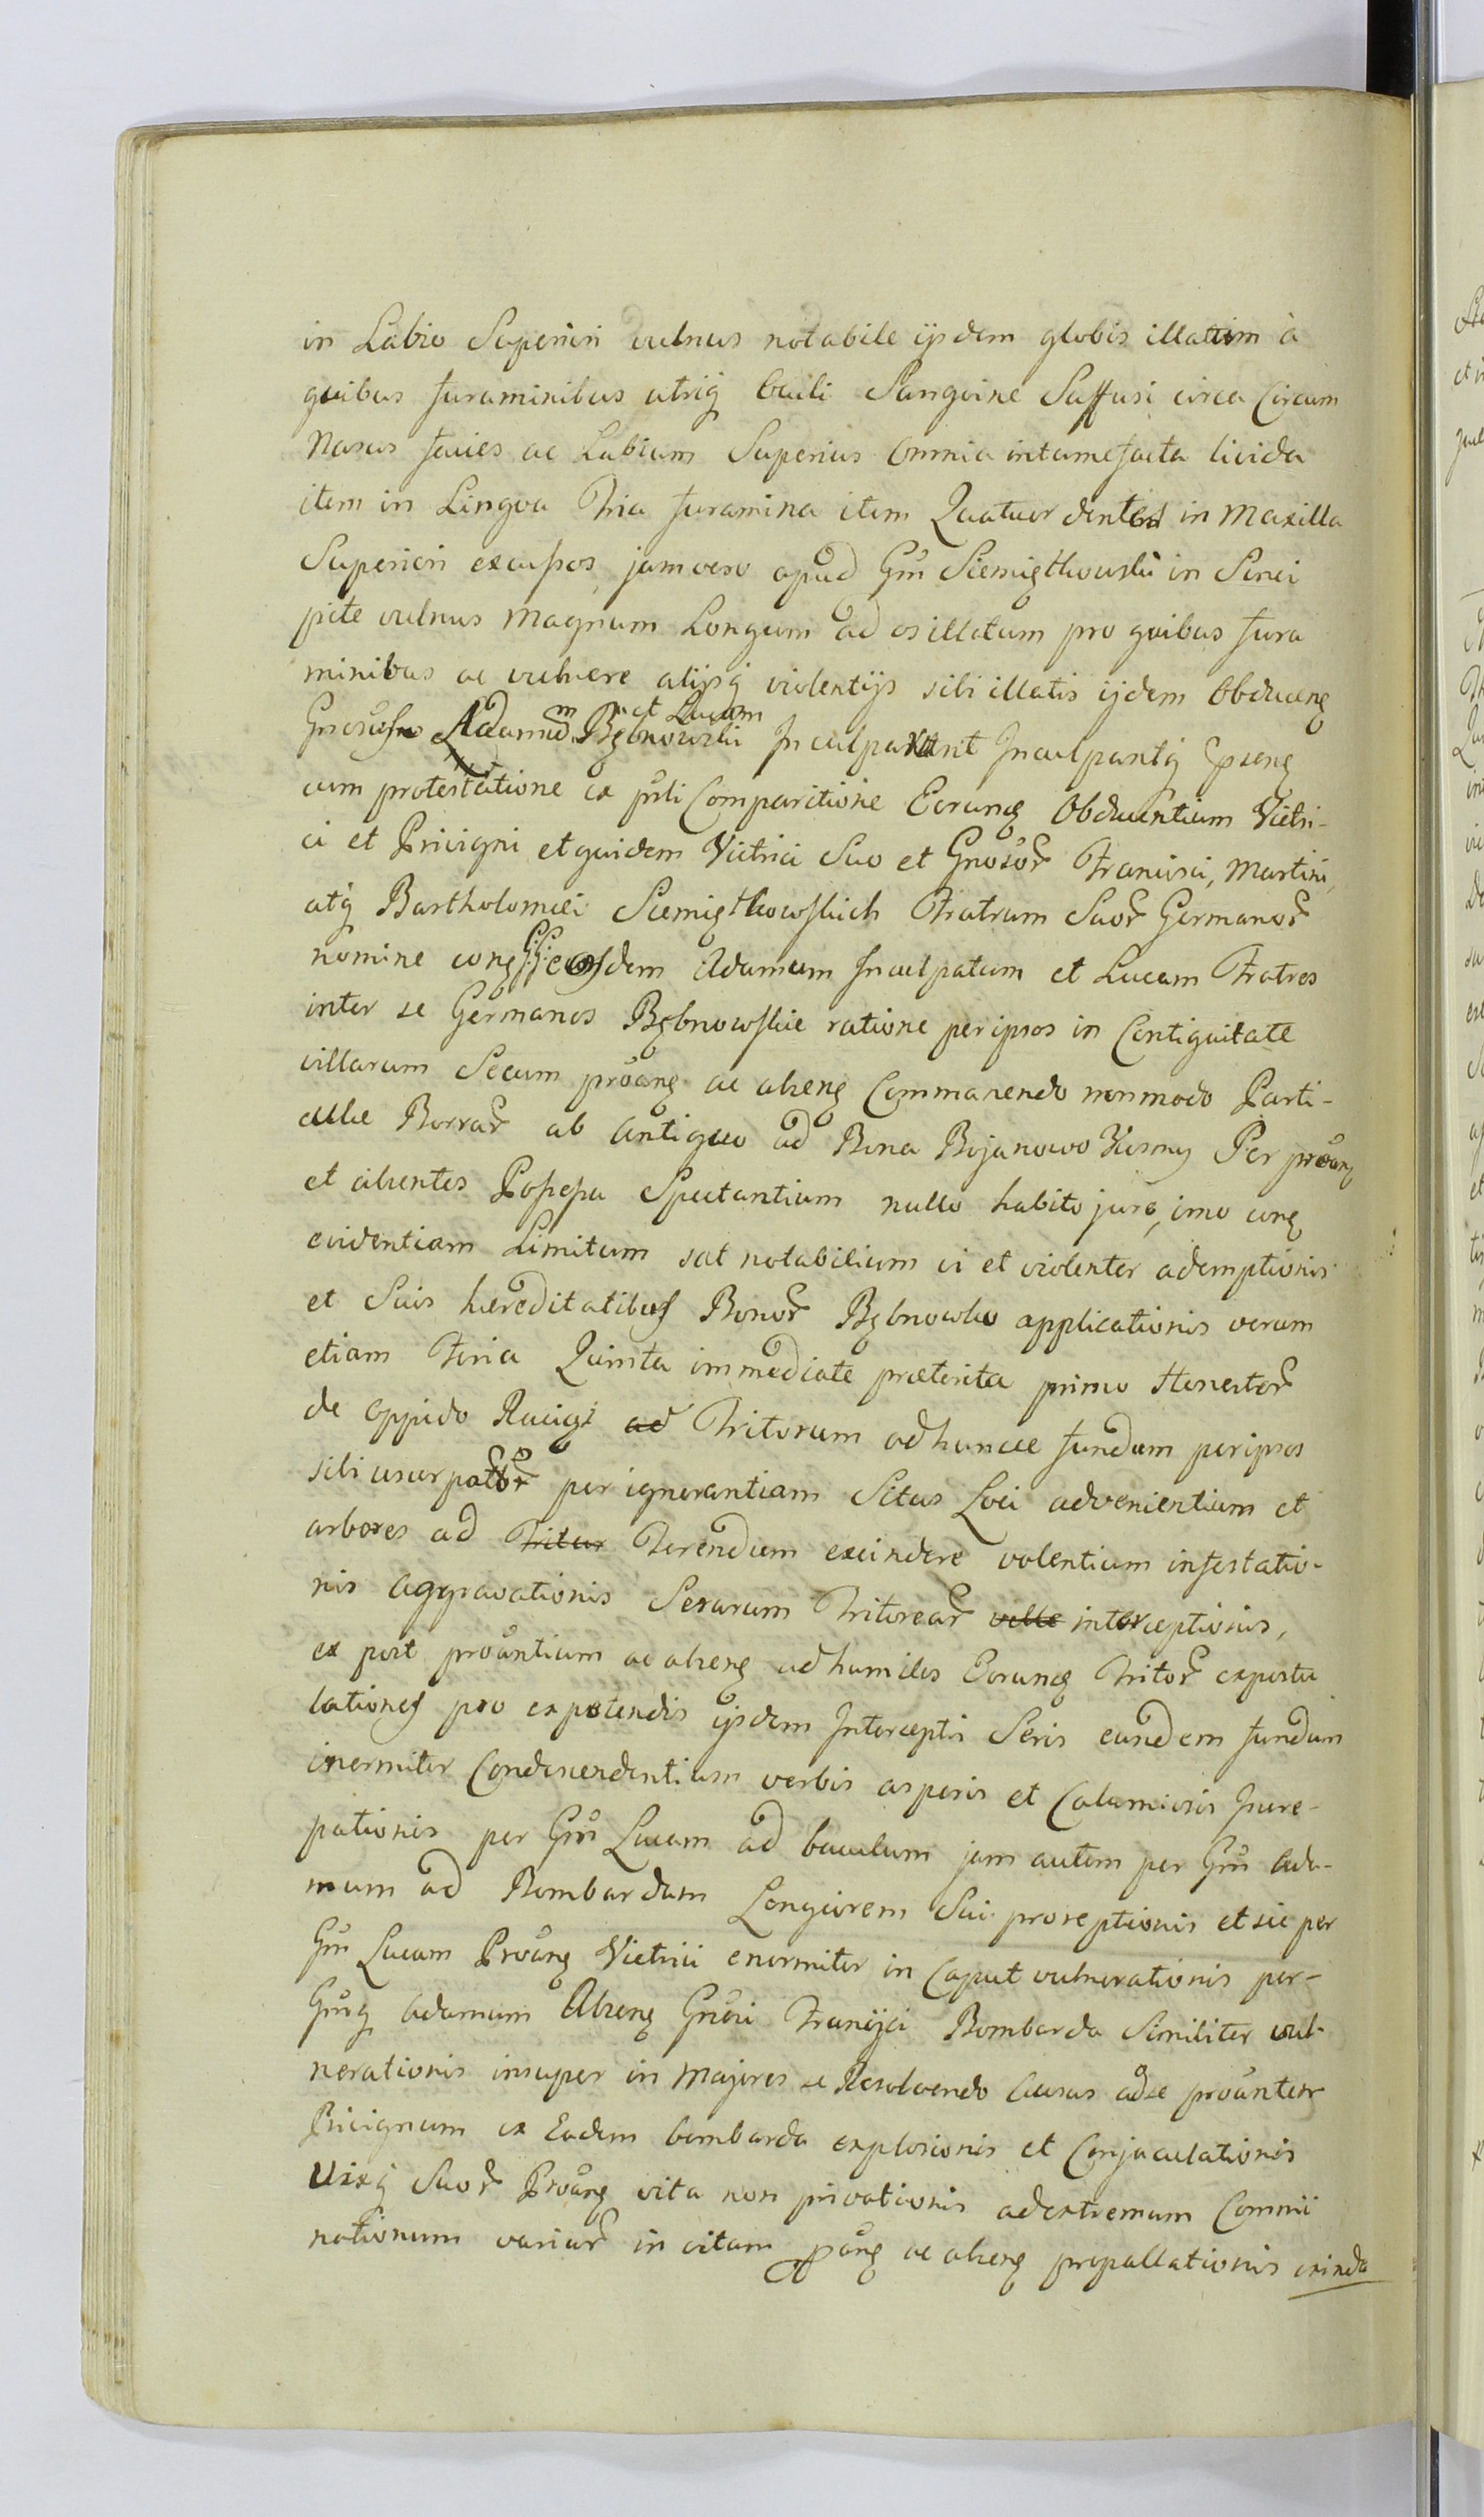 in Labio Superiori vulnus notabile ijsdem globis illatum à
quibus foraminibus utriq Oculi Sanguine Suffusi circa Circum
Nasus facies ac Labium Superius omnia intumefacta livida
item in Lingva Tria foramina item Quatuor dentes in Maxilla
Superiori excussos, jam vero apud Gm Siemiątkowski in Sinci
pite vulnus magnum Longum ad os illatum pro quibus fora
minibus ac vulnere alijsq violentijs sibi illatis ijdem Obduceng
Adamum et Lucam Inculparunt Inculpantq
cum protestatione ex Comparitione Eorung Obducentium Vitri-
ci et Privigni et quidem Vitrici Suo et Gnosor Francisci, Martini,
atq Bartholomiei Siemiątkowskich Fratrum Suor Germanor
nomine eosdem Adamum Inculpatum et Lucam Fratres
inter se Germanos Bębnowskie ratione per ipsos in Contiguitate
villarum Secum proang ac alreng Commanendo non modo Parti-
culae Borrar ab antiquo ad Bona Bojanowo Per proang
et alrentes Possessa Spectantium nullo habito jure, imo
evidentiam Limitum sat notabilium vi et violenter ademptionis
et Suis hereditatibus Bonor Bębnowko applicationis verum
etiam Feria Quinta immediate praeterita primo Honestor
de oppido ad Tritorum ad huncce fundum per ipsos
sibi usurpator per ignorantiam Situs Loci advenientium et
arbores ad Tritur Terendum excindere volentium infestatio-
nis aggravationis Serarum Tritorear interceptionis,
ex post proantium ac alreng ad humiles Eorung Tritor expostu
lationes pro expetendis ijsdem Interceptis Seris eundem fundum
inermiter Condescendentium verbis asperis et Calumiosis Incre-
pationis per Gm Lucam ad baculum jam autem per Gm Ada-
mum ad Bombardam Longiorem Sui proreptionis et sic per
Gm Lucam Proang Vitrici enormiter in Caput vulnerationis per-
Gmq Adamum Alreng Gnosi Francisci Bombarda Similiter vul-
nerationis insuper in Majores se Resolvendo Ausus adse proantem
Privignum ex Eadem bombarda explosionis et Conjaculationis
Vixq Suor Proang vita non privationis ad extremum Commi
nationum variar in vitam ppang ac alreng propallationis exinde